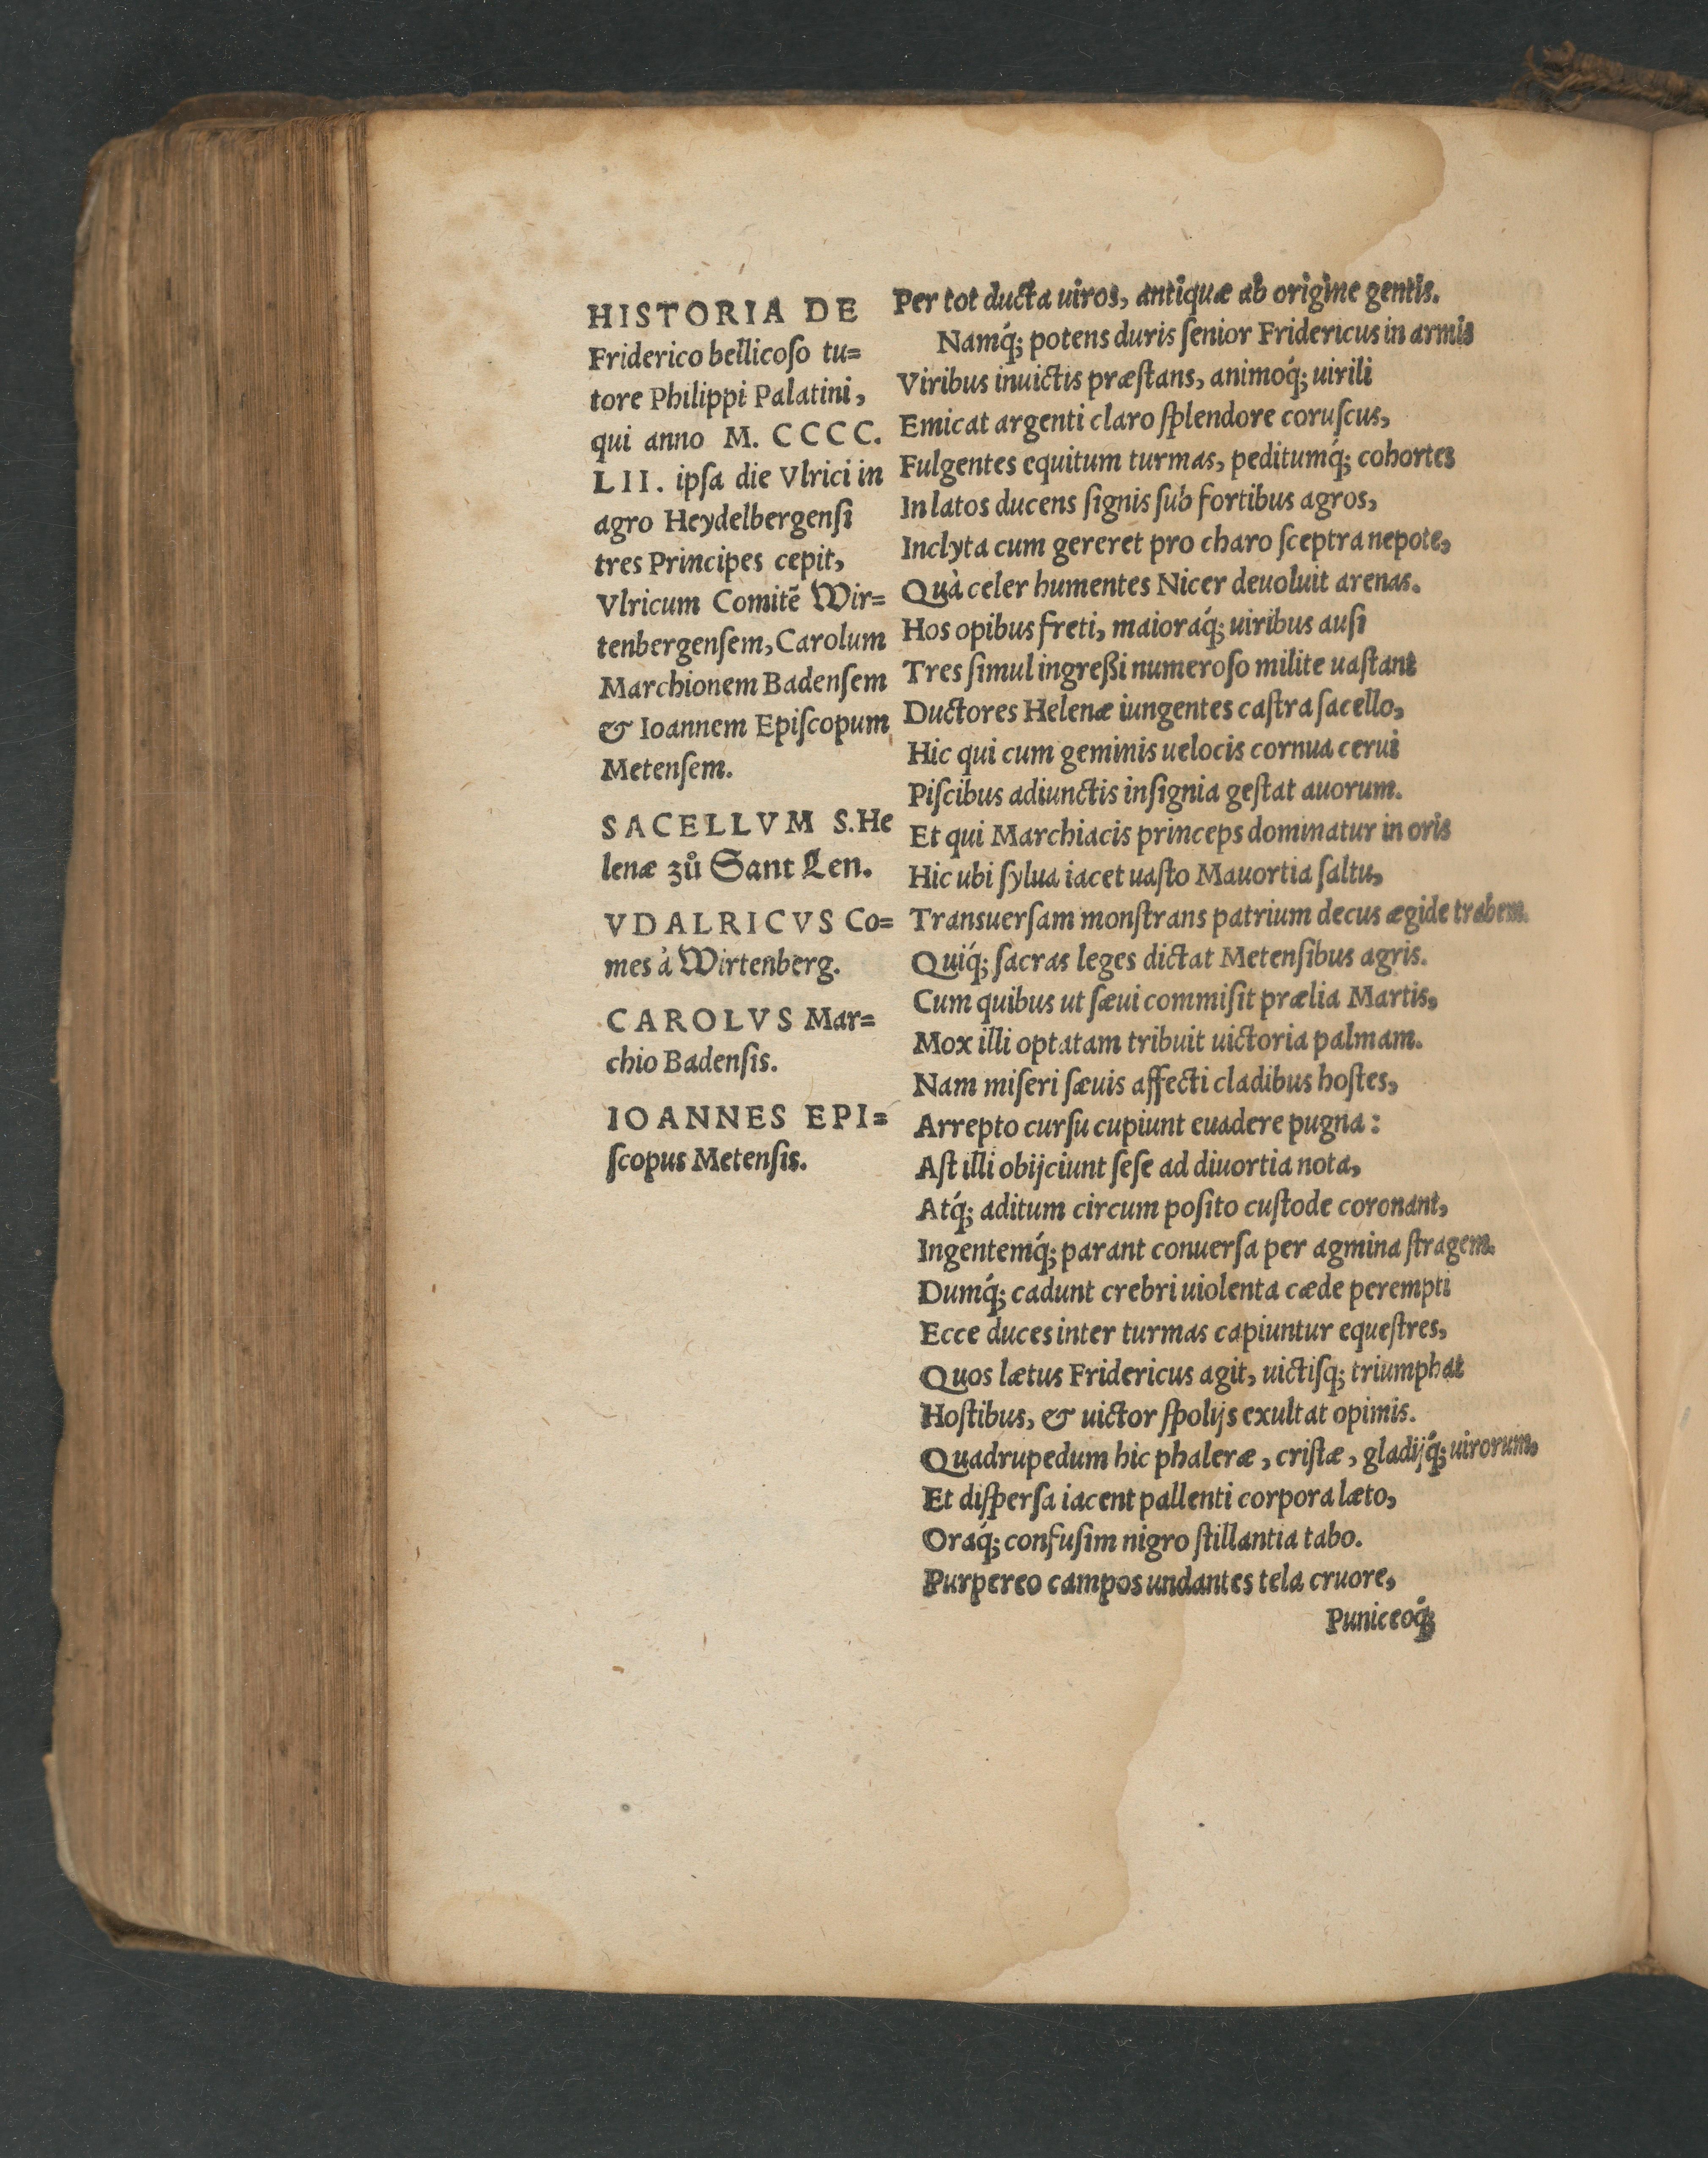 HISTORIA DE
Friderico bellicoſo tu=
tore Philippi Palatini,
qui anno M. CCCC.
LII. ipſa die Vlrici in
agro Heydelbergenſi
tres Principes cepit,
Vlricum Comitẽ Wir=
tenbergenſem, Carolum
Marchionem Badenſem
& Ioannem Epiſcopum
Metenſem.
SACELLVM S. He
lenæ zů Sant Len.
VDALRICVS Co=
mes à Wirtenberg.
CAROLVS Mar=
chio Badenſis.
IOANNES EPI=
ſcopus Metenſis.
Per tot ducta uiros, antiquæ ab origine gentis.
Namq́; potens duris ſenior Fridericus in armis
Viribus inuictis præſtans, animoq́; uirili
Emicat argenti claro ſplendore coruſcus,
Fulgentes equitum turmas, peditumq́; cohortes
In latos ducens ſignis ſub fortibus agros,
Inclyta cum gereret pro charo ſceptra nepote,
Quà celer humentes Nicer deuoluit arenas.
Hos opibus freti, maioraq́; uiribus auſi
Tres ſimul ingreßi numeroſo milite uaſtant
Ductores Helenæ iungentes caſtra ſacello,
Hic qui cum geminis uelocis cornua cerui
Piſcibus adiunctis inſignia geſtat auorum.
Et qui Marchiacis princeps dominatur in oris
Hic ubi ſylua iacet uaſto Mauortia ſaltu,
Transuerſam monſtrans patrium decus ægide trabem.
Quiq́; ſacras leges dictat Metenſibus agris.
Cum quibus ut ſæui commiſit prælia Martis,
Mox illi optatam tribuit uictoria palmam.
Nam miſeri ſæuis affecti cladibus hoſtes,
Arrepto curſu cupiunt euadere pugna:
Aſt illi obijciunt ſeſe ad diuortia nota,
Atq́; aditum circum poſito cuſtode coronant,
Ingentemq́; parant conuerſa per agmina ſtragem.
Dumq́; cadunt crebri uiolenta cæde perempti
Ecce duces inter turmas capiuntur equeſtres,
Quos lætus Fridericus agit, uictiſq; triumphat
Hoſtibus, & uictor ſpolijs exultat opimis.
Quadrupedum hic phaleræ, criſtæ, gladijq́; uirorum,
Et diſperſa iacent pallenti corpora læto,
Oraq́; confuſim nigro ſtillantia tabo.
Purpereo campos undantes tela cruore,
Puniceoq́;